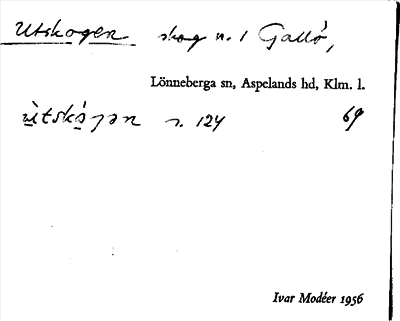 Utskogen skog n. 1 Gallö,
Lönneberga sn, Aspelands hd, Klm. l.
ùtskó̱ɡən s. 124 69
Ivar Modéer 1956